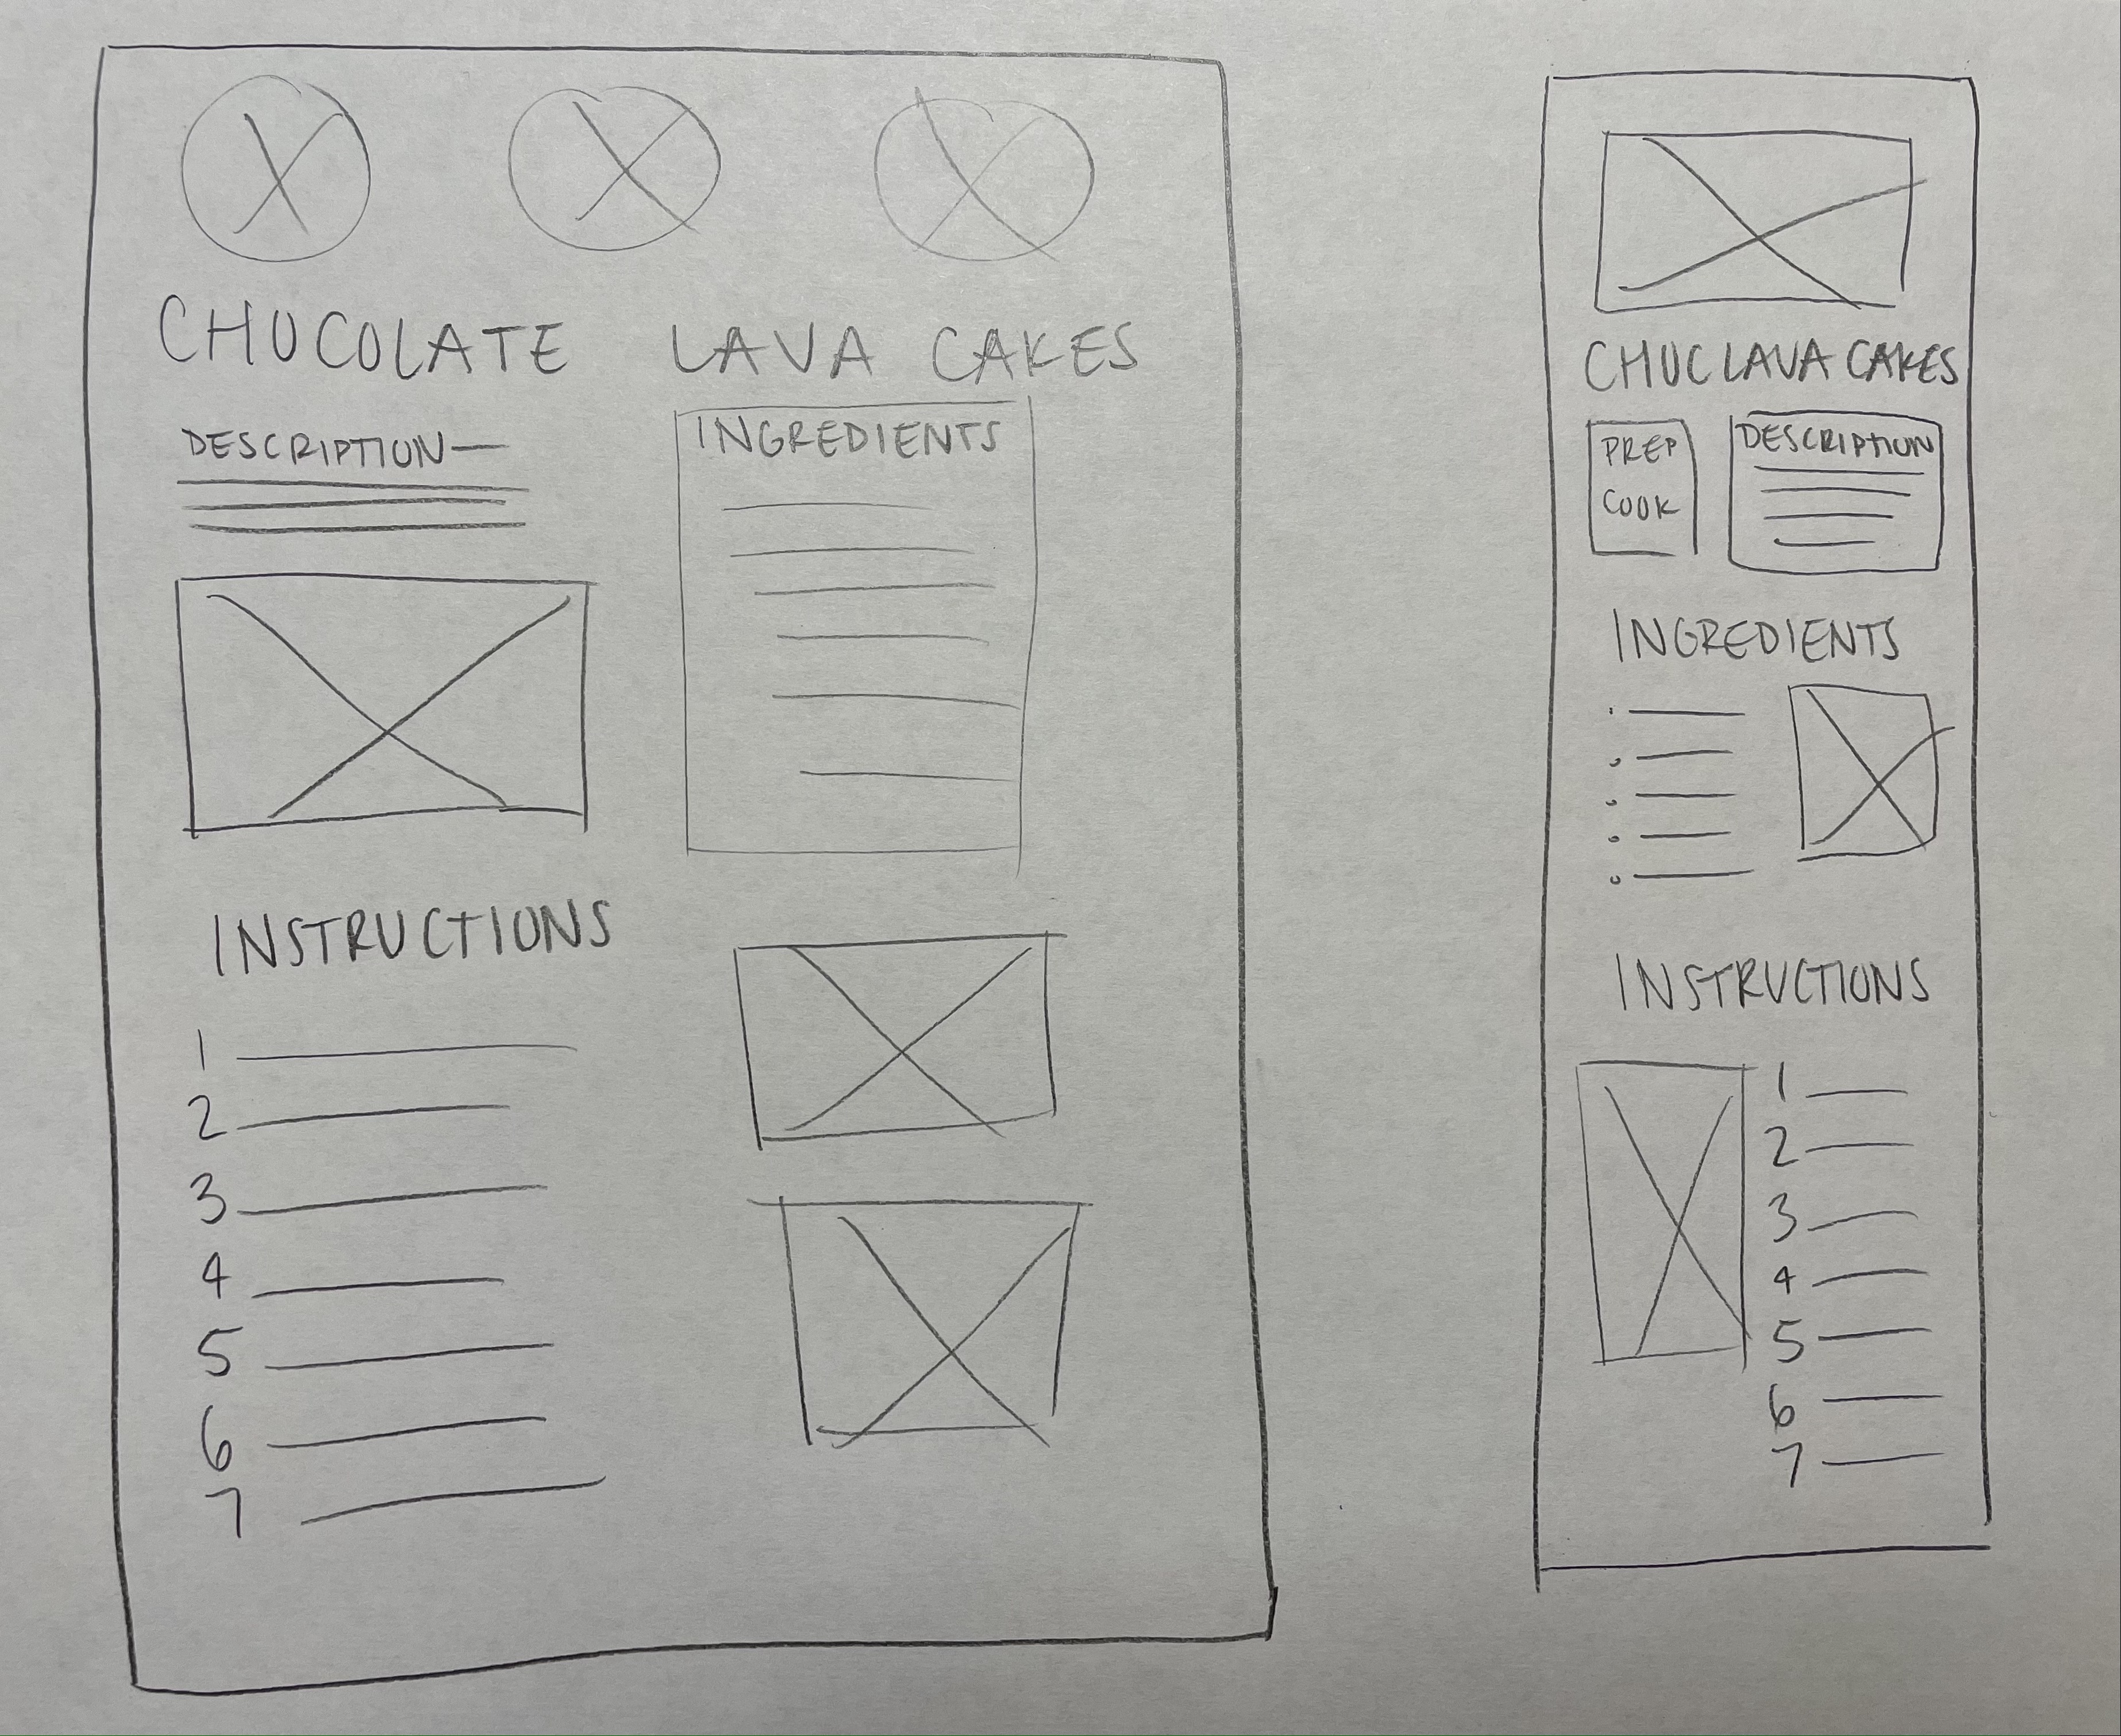 CHOCOLATE LAVA CAKES
DESCRIPTION
INGREDIENTS
INSTRUCTIONS
1
2
3
4
5
6
7
CHOC LAVA CAKES
PREP
COOK
DESCRIPTION
INGREDIENTS
INSTRUCTIONS
1
2
3
4
5
6
7